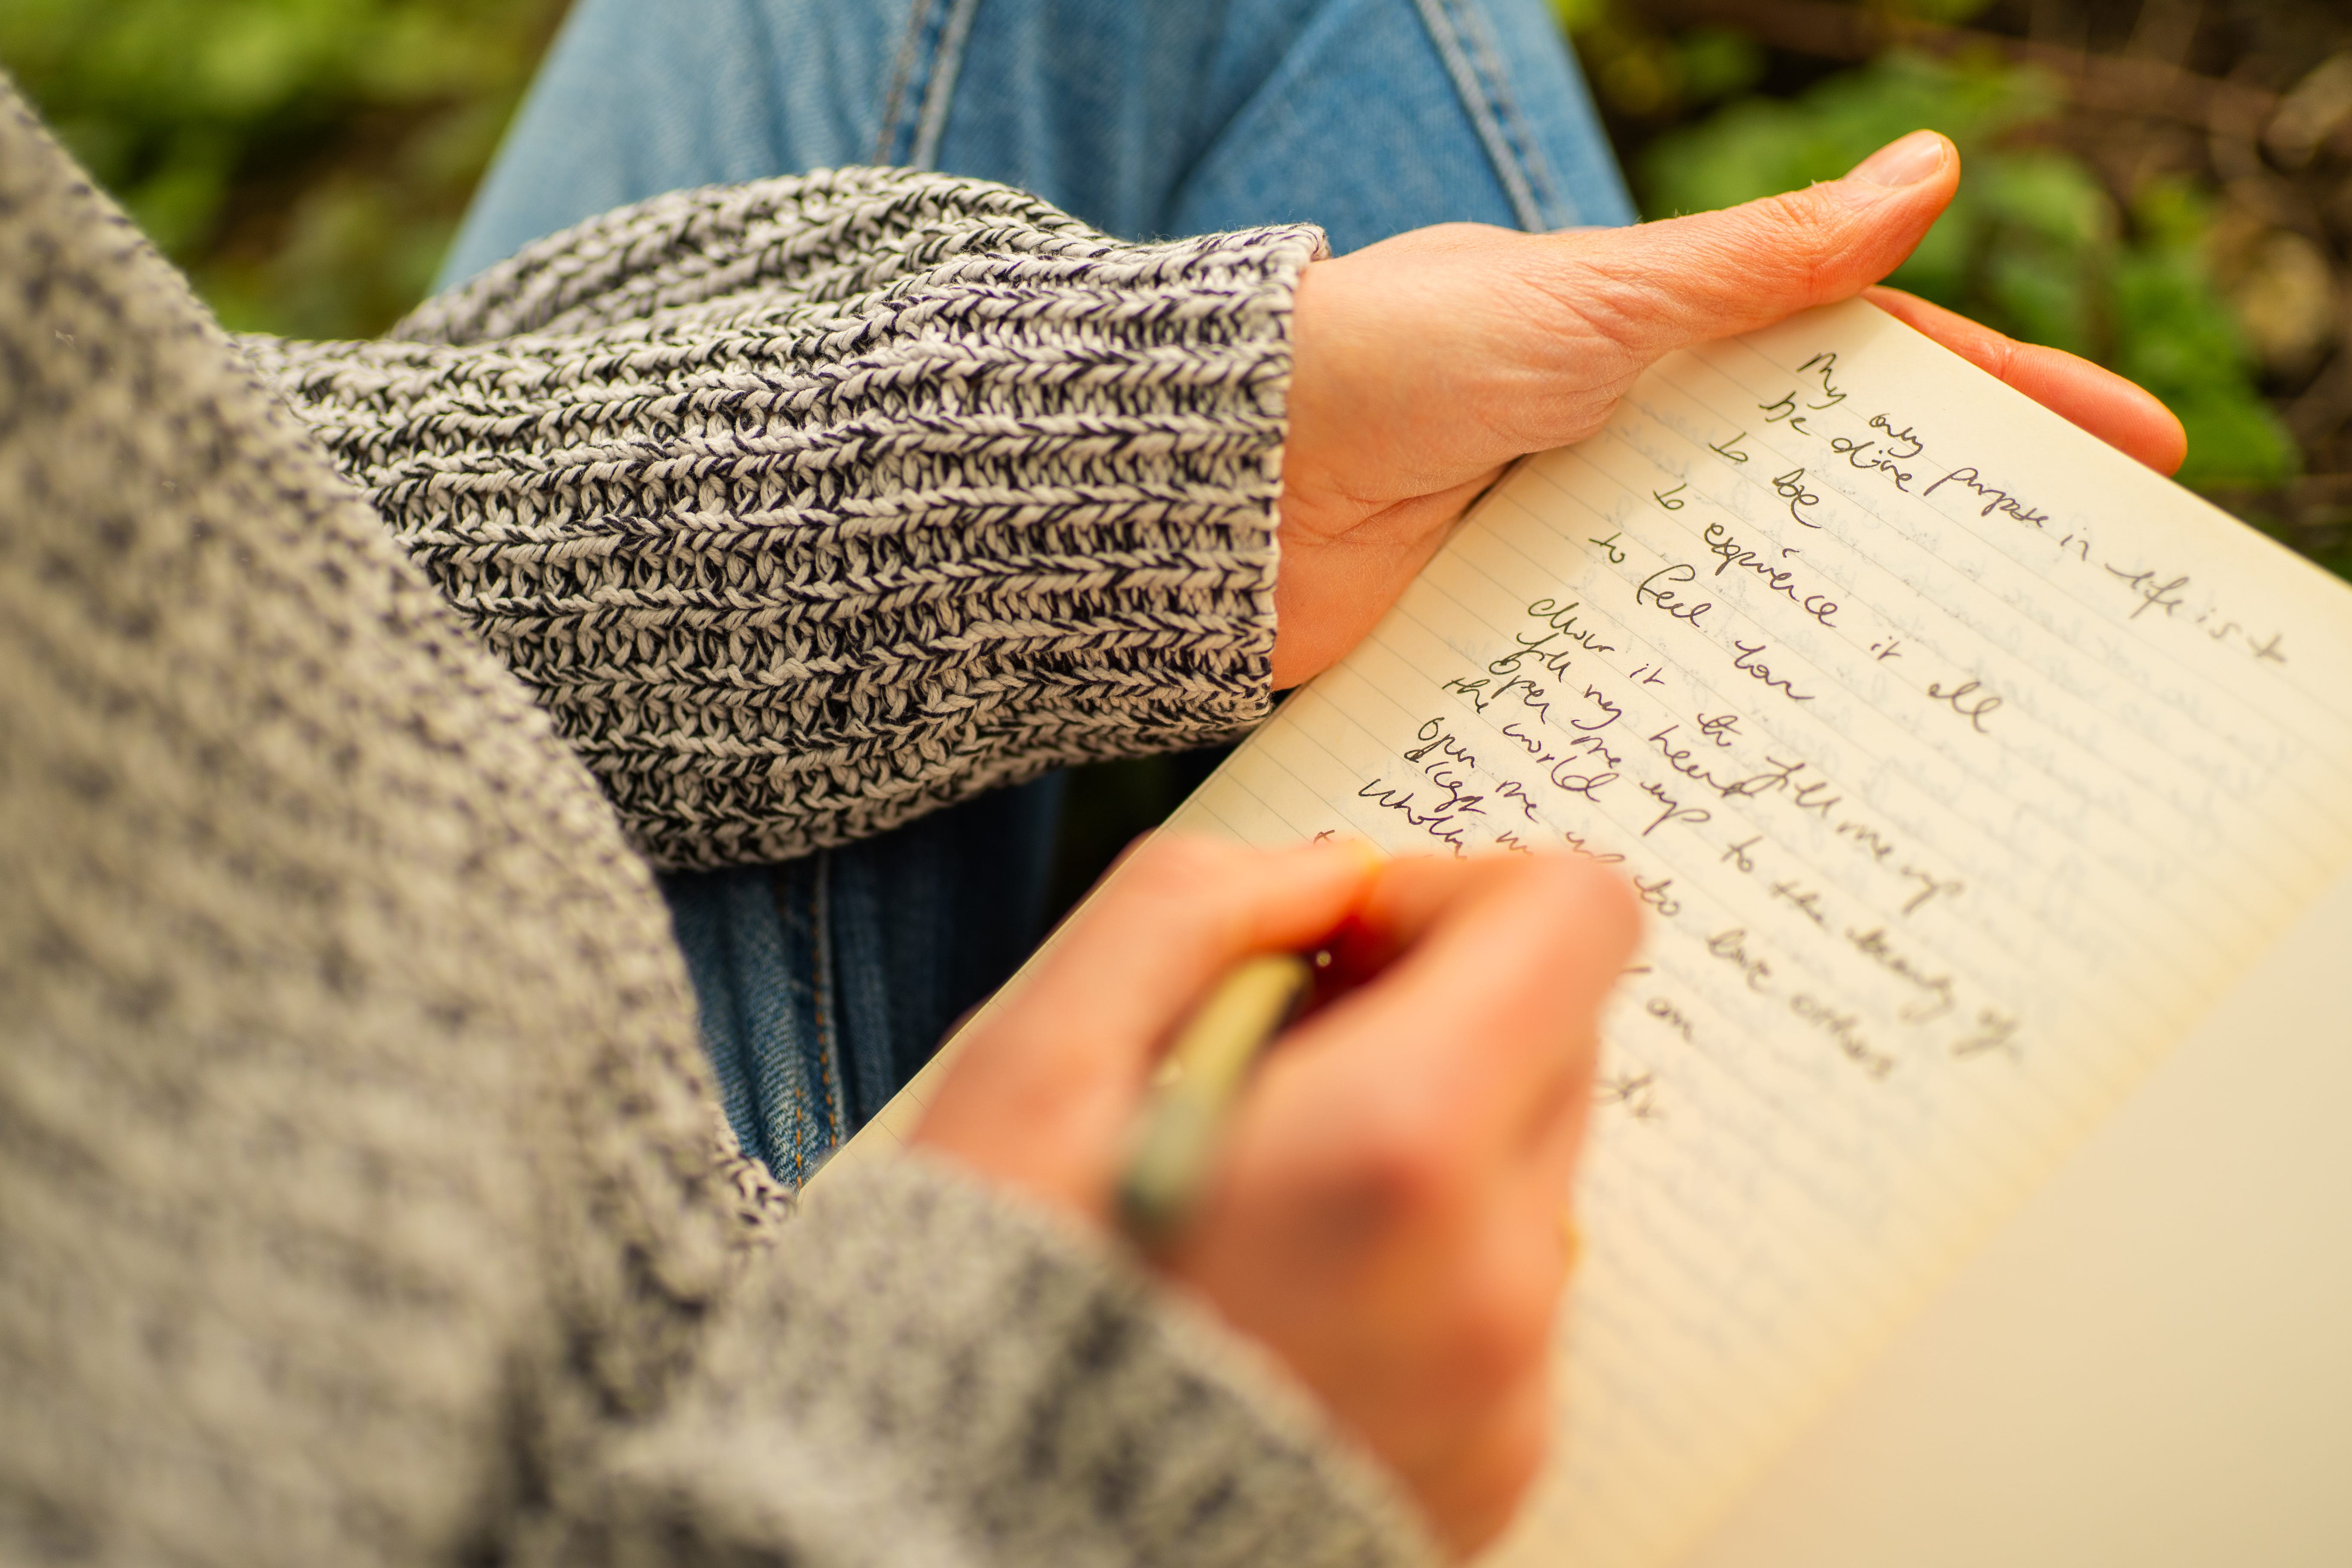 My only purpose in life is to
be alive
to be
to experience it all
to feel how
allow it to fill me up
fill my heart
open me up to the beauty of
the world
open me up to love others
wholly
am